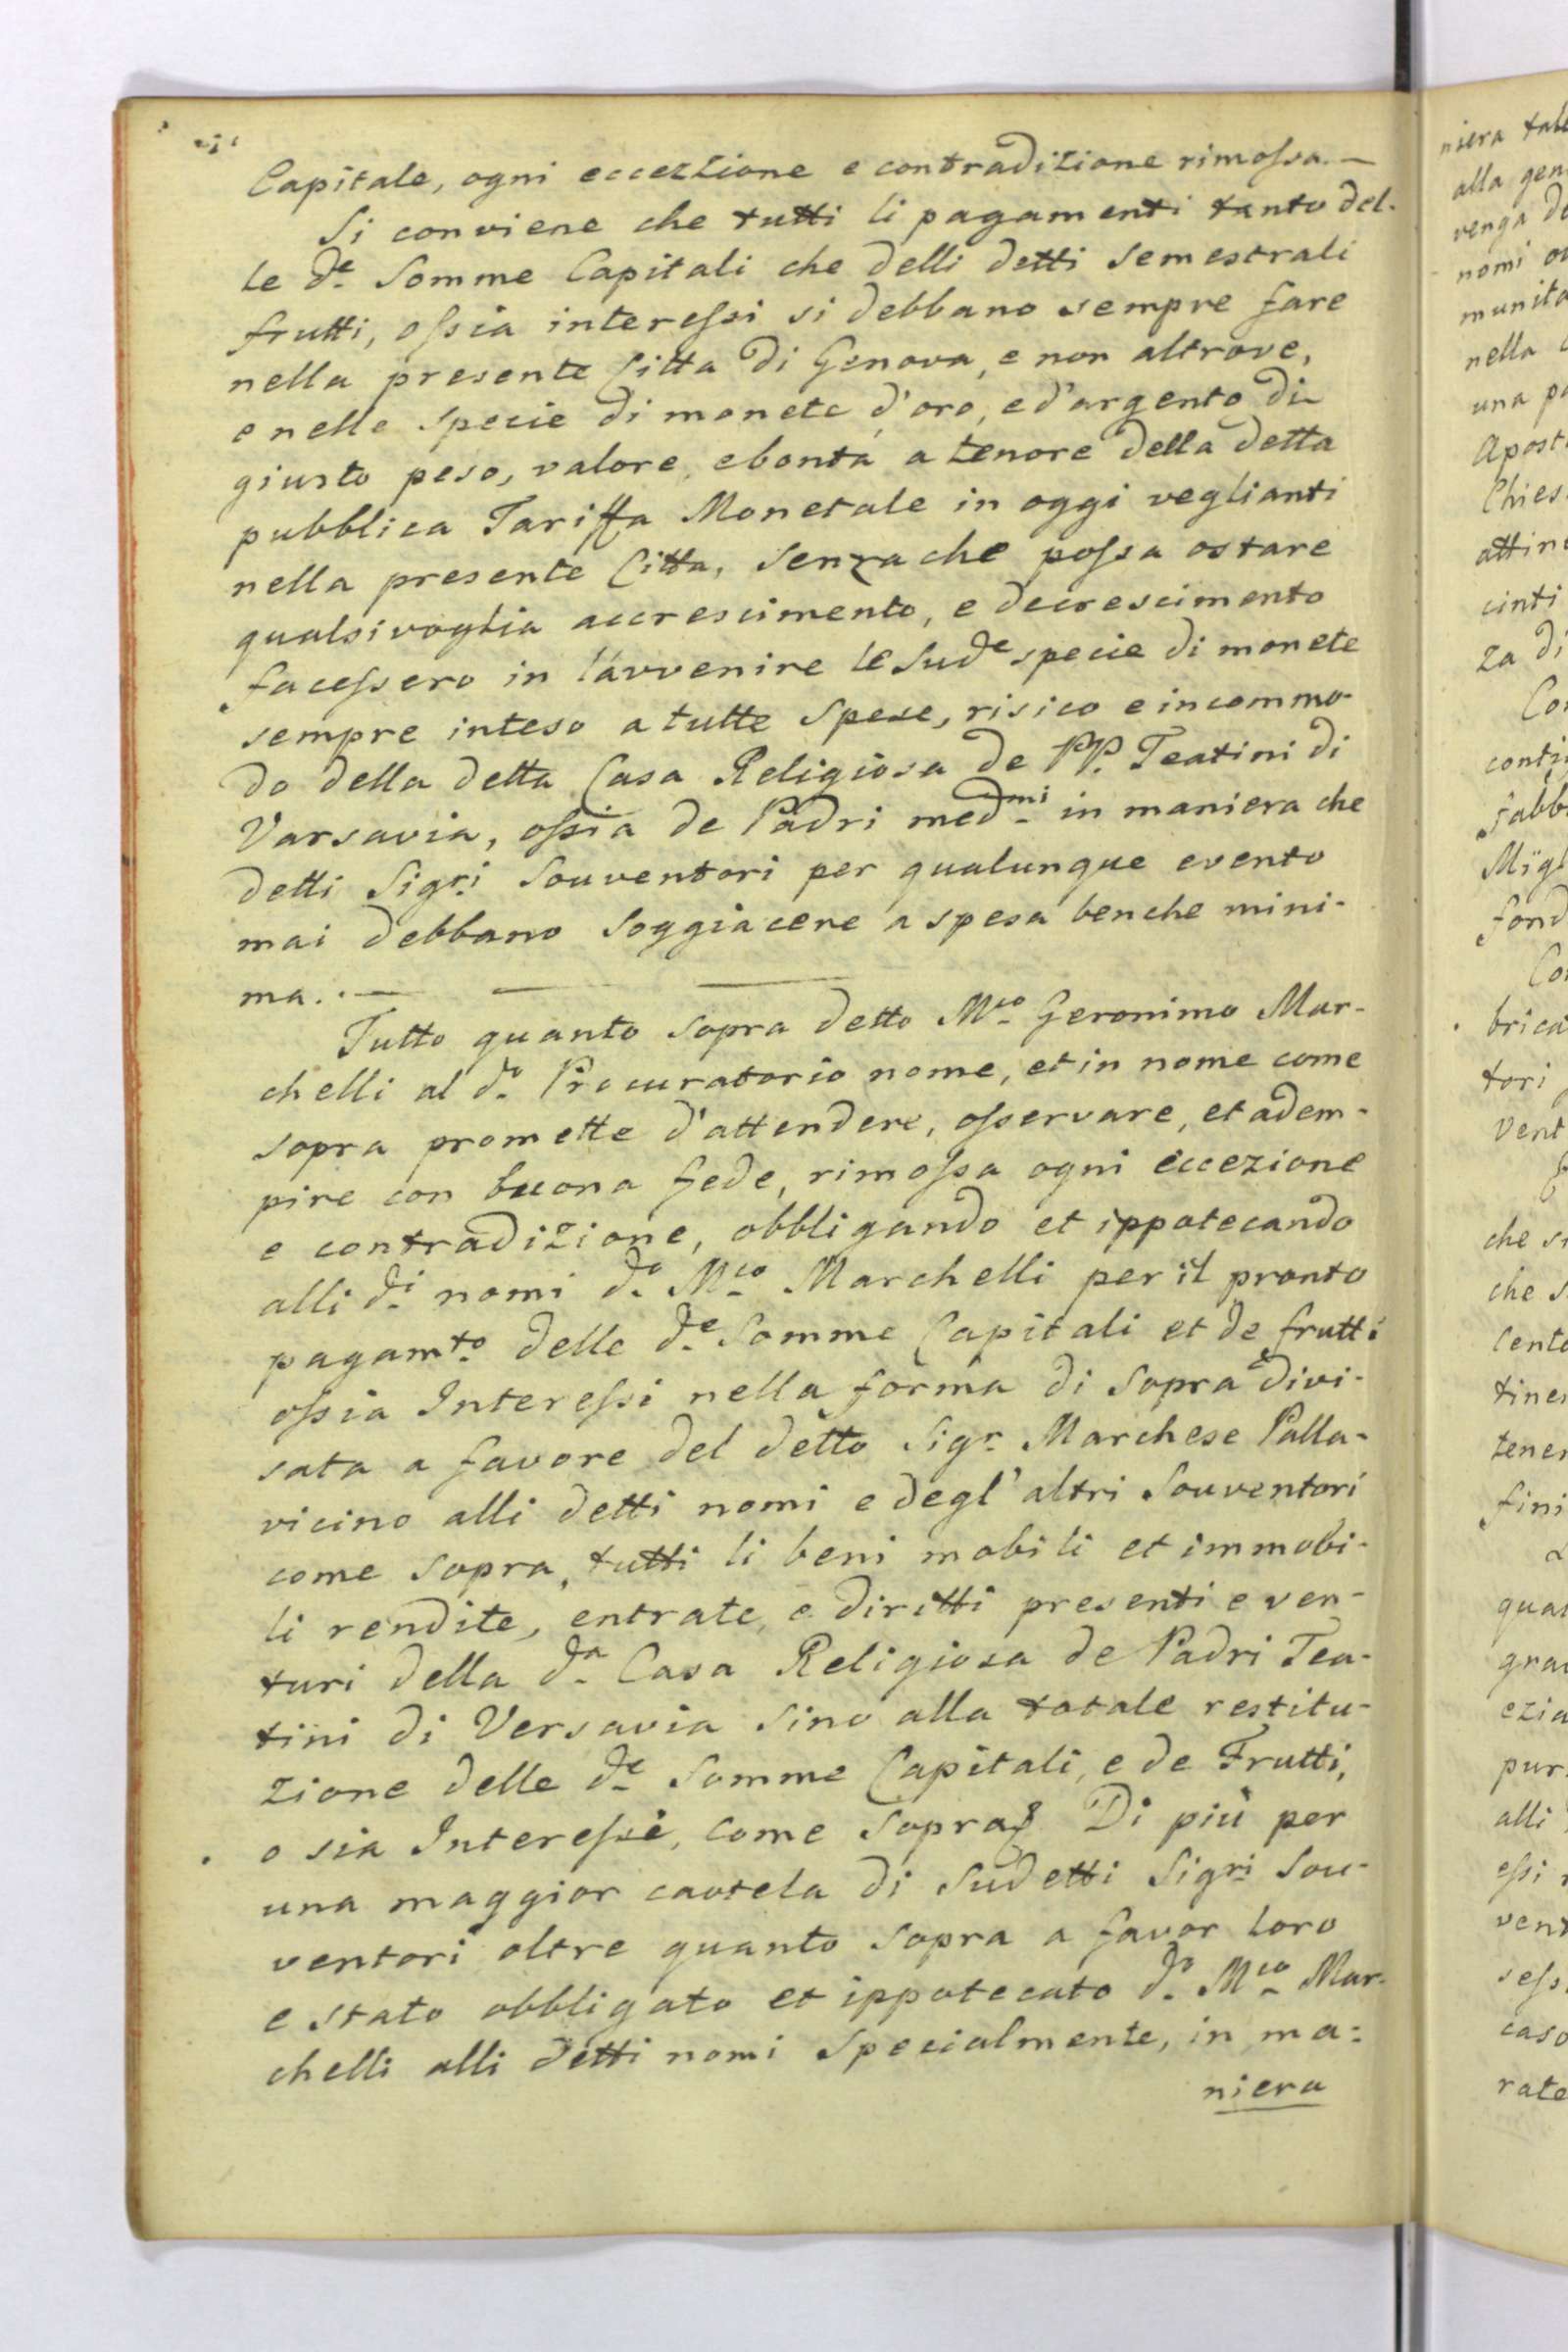 Capitale, ogni eccezzione e contradizione rimossa. —
Si conviene che tutti li pagamenti tanto del-
le de. Somme Capitali che delli detti semestrali
frutti, ossia interessi si debbano sempre fare
nella presente Citta di Genova, e non altrove,
e nelle specie di monete d'oro, e d'argento di
giusto peso, valore, e bontà a tenore della detta
pubblica Tariffa Monetale in oggi veglianti
nella presente Citta, senza che possa ostare
qualsivoglia accrescimento, e decrescimento
facessero in l'avvenire le Sude specie di monete
sempre inteso a tutte Spese, risico e incommo-
do della detta Casa Religiosa de PP. Teatini di
Varsavia, ossia de Padri medmi in maniera che
detti Sigri Souventori per qualunque evento
mai debbano soggiacere a spesa benche mini-
ma. . —
Tutto quanto sopra detto Mco Geronimo Mar-
chelli al do. Procuratorio nome, et in nome come
sopra promette d'attendere, osservare, et adem-
pire con buona fede, rimossa ogni eccezione
e contradizione, obbligando et ippotecando
alli di nomi do. Mco. Marchelli per il pronto
pagamto. delle de. Somme Capitali et de frutti
ossia Interessi nella forma di sopra divi-
sata a favore del detto Sigr. Marchese Palla-
vicino alli detti nomi e degl' altri Souventori
come sopra, tutti li beni mobili et immobi-
li rendite, entrate, e diritti presenti e ven-
turi della da. Casa Religiosa de Padri Tea-
tini di Versavia sino alla totale restitu-
zione delle de. Somme Capitali, e de Frutti,
o sia Interesse, come sopra Di più per
una maggior cautela di Sudetti Sigri Sou-
ventori oltre quanto sopra a favor loro
e stato obbligato et ippotecato do. Mco. Mar-
chelli alli detti nomi Specialmente, in ma:
niera
niera
alla gen
venga
nomi
nella
una
cinti
za di
brica
tori
vent
che
che
fini
pur
alli
caso
rate